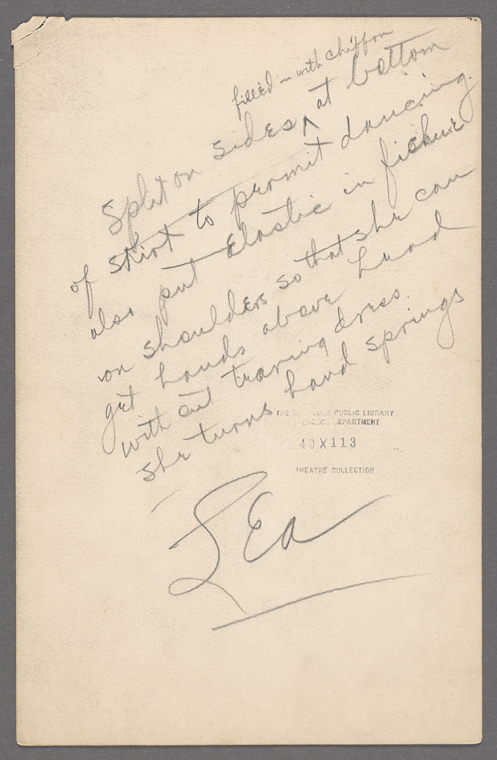 filled in with chiffon
Split on sides ^ at bottom
of skirt to permit dancing.
also put elastic in fichue
on shoulders so that she can
get hands above head
with out traring dress.
She turns hand springs
THE NEW YORK PUBLIC LIBRARY
40X113
THEATRE COLLECTION
Lea